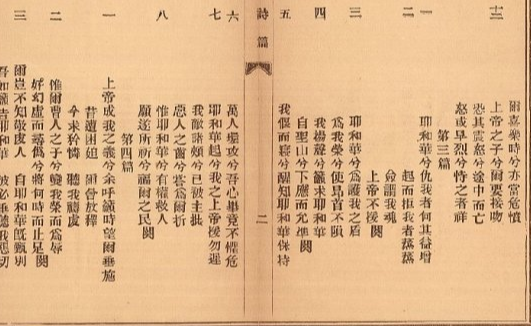 十二
爾喜樂時兮亦當危懼
上帝之子兮爾要接吻
恐其震怒兮途中而亡
怒或早烈兮恃之者祥
第三篇
一 耶和華兮仇我者何其益增
起而拒我者蒸蒸
二 僉謂我魂
上帝不援闋
三 耶和華兮為護我之盾
為我榮兮使昂首不隕
四 我揚聲兮籲求耶和華
自聖山兮下應而允準闋
五 我偃而寢兮醒知耶和華保持
詩篇 二
六 萬人環攻兮吾心畢竟不懼危
七 耶和華起兮我之上帝援勿遲
我敵諸頰兮已被主批
惡人之齒兮為爾折
八 惟耶和華兮有權救人
願遂所祈兮福爾之民闋
第四篇
一 上帝成我之義兮余呼籲時望爾垂施
昔遭困迫 爾曾放釋
今求矜憐 聽我禱
二 惟爾曹人之子兮變我榮而為辱
好幻虛而尋偽兮將何時而止足闋
三 爾豈不知敬虔人 自耶和華既甄別
吾如籲告耶和華 彼必垂聽我懇切